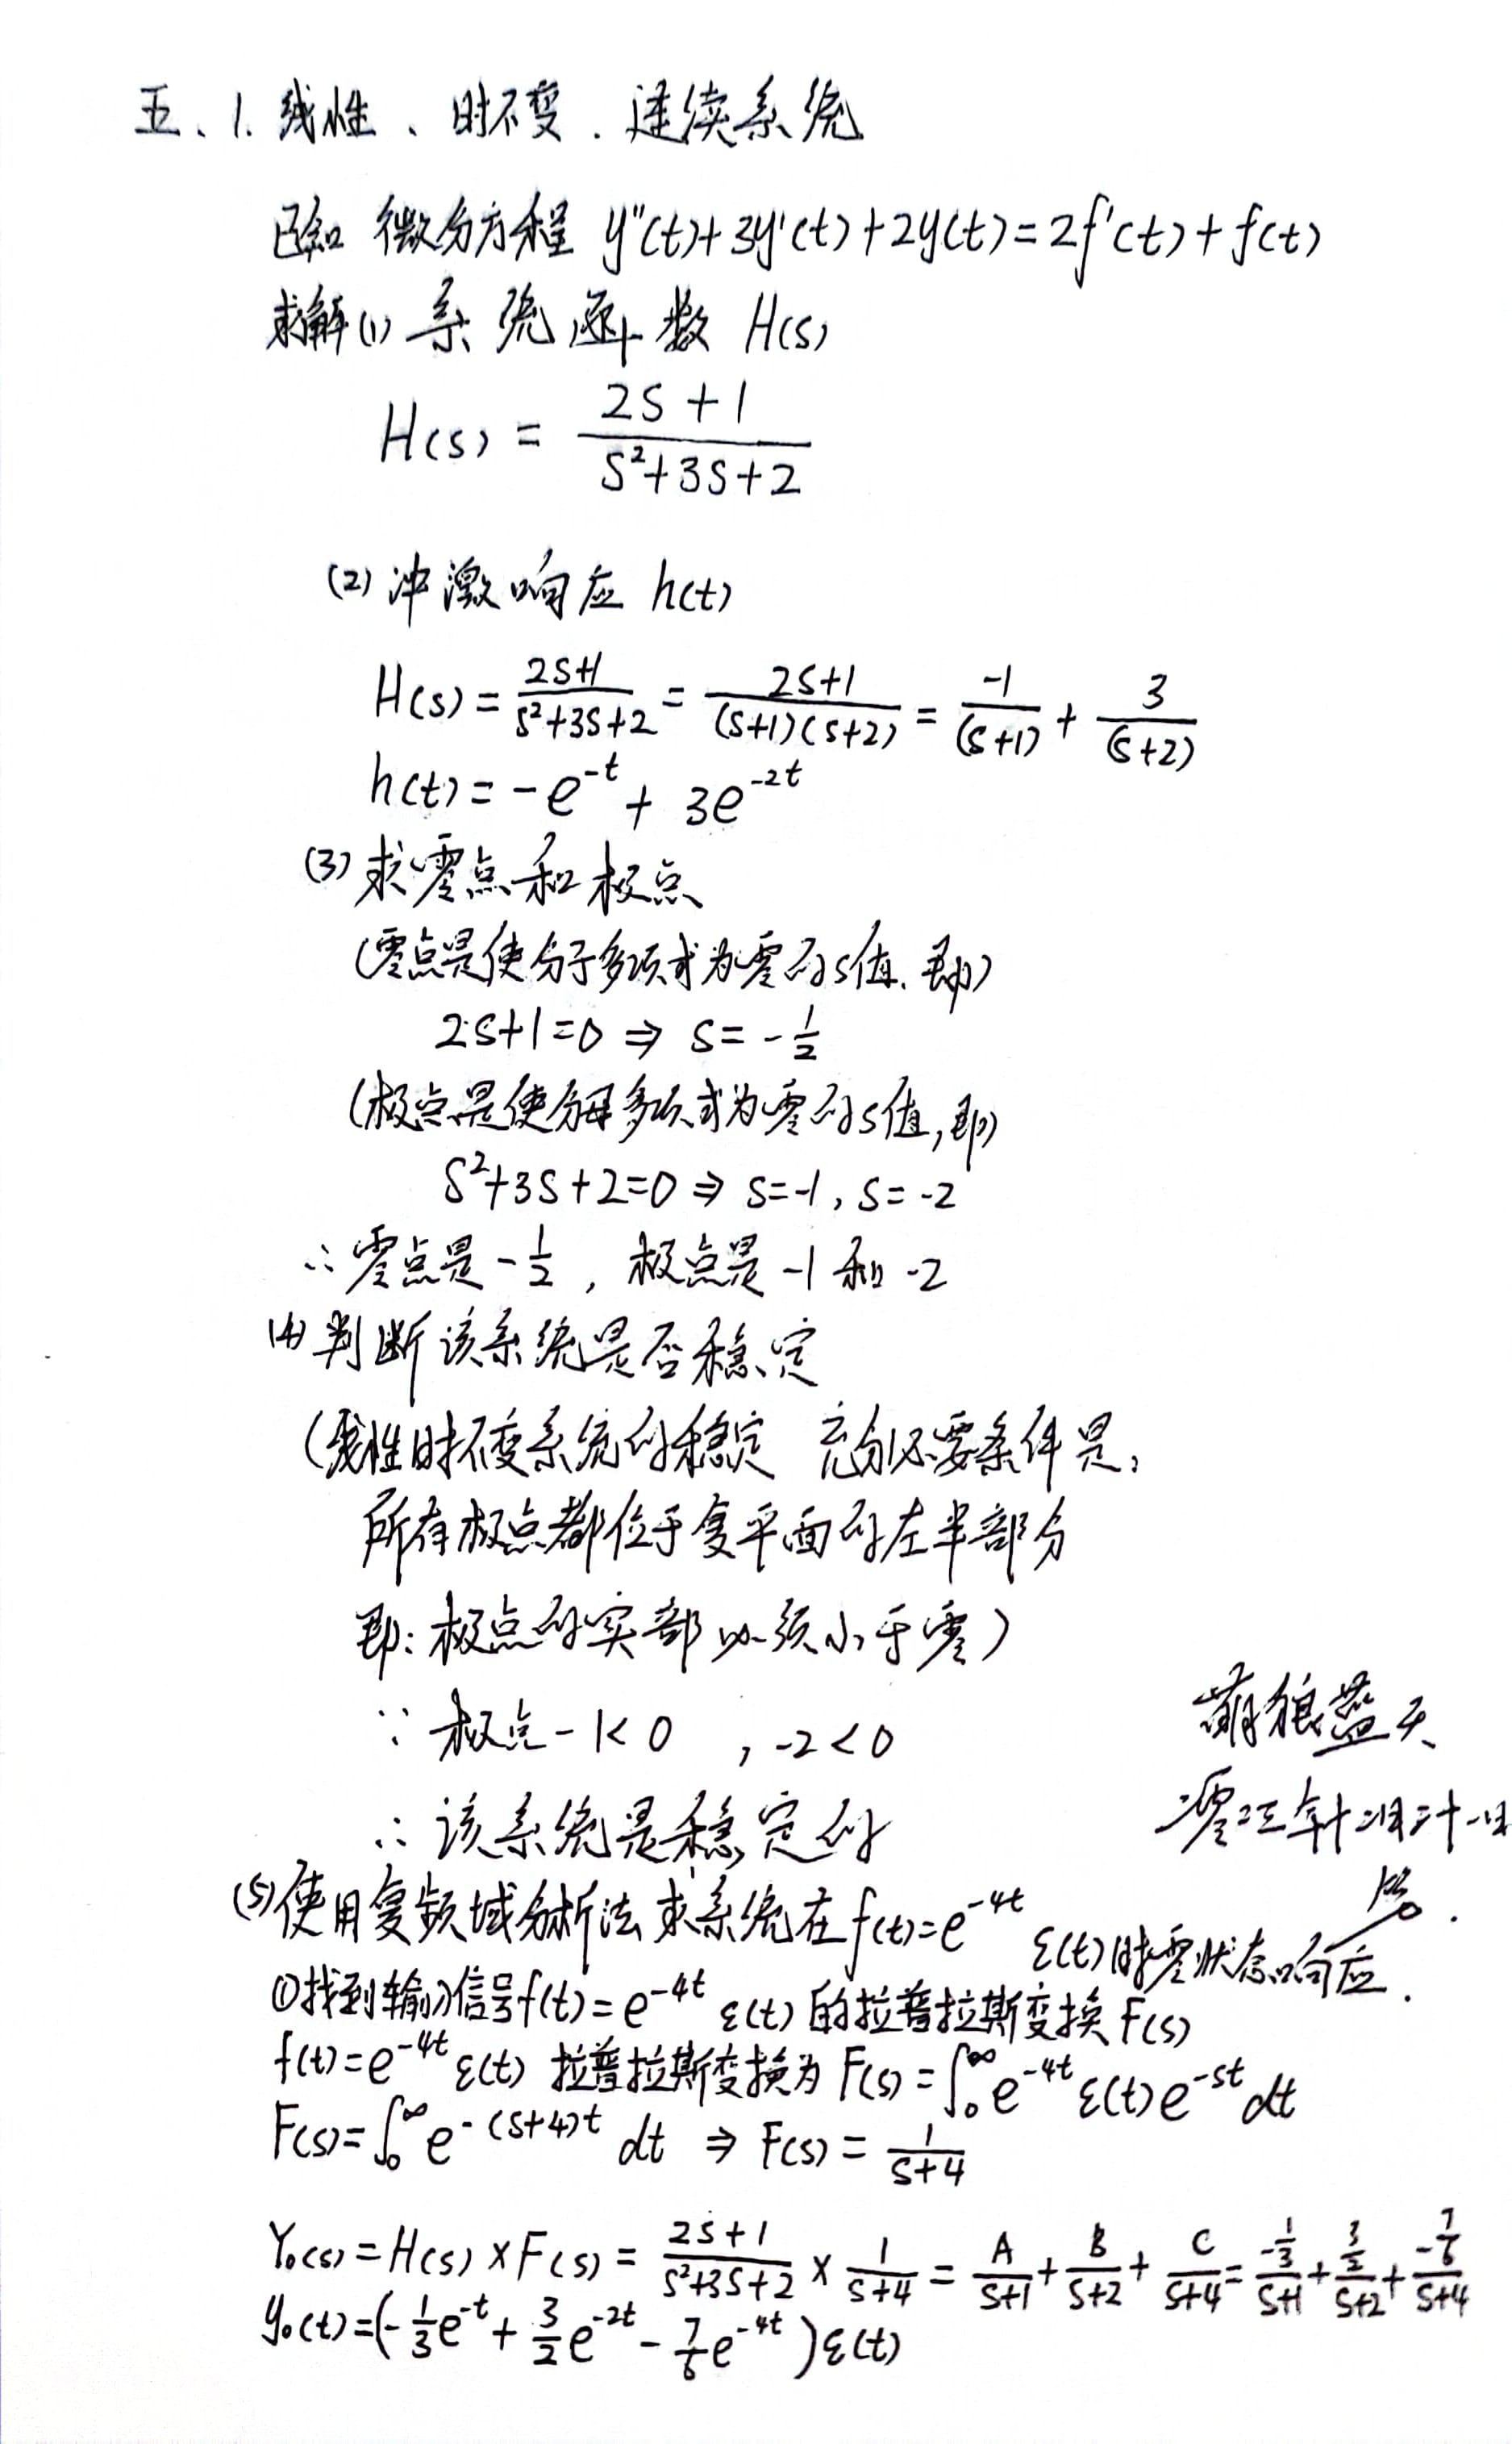 五、1. 线性、时不变、连续系统
已知 微分方程 y''(t)+3y'(t)+2y(t)=2f'(t)+f(t)
求解(1) 系统函数 H(s)
H(s) = \frac{2s+1}{s²+3s+2}
(2) 冲激响应 h(t)
H(s) = \frac{2s+1}{s²+3s+2} = \frac{2s+1}{(s+1)(s+2)} = \frac{-1}{(s+1)} + \frac{3}{(s+2)}
h(t) = -e^{-t} + 3e^{-2t}
(3) 求零点和极点
(零点是使分子多项式为零的s值,即)
2s+1=0 ⇒ s=-\frac{1}{2}
(极点是使分母多项式为零的s值,即)
s²+3s+2=0 ⇒ s=-1, s=-2
∴ 零点是 -\frac{1}{2}, 极点是 -1 和 -2
(4) 判断该系统是否稳定
(线性时不变系统的稳定 充分必要条件是:
所有极点都位于复平面的左半部分
即: 极点的实部必须小于零)
∵ 极点 -1<0 , -2<0
萌狼蓝天
∴ 该系统是稳定的
二零二三年十二月二十一日
(5) 使用复频域分析法求系统在 f(t)=e^{-4t} ε(t)时零状态响应.
①找到输入信号f(t)=e^{-4t} ε(t) 的拉普拉斯变换 F(s)
f(t)=e^{-4t} ε(t) 拉普拉斯变换为 F(s)=∫_0^∞ e^{-4t} ε(t) e^{-st} dt
F(s)=∫_0^∞ e^{-(s+4)t} dt ⇒ F(s)=\frac{1}{s+4}
Y₀(s)=H(s)×F(s)=\frac{2s+1}{s²+3s+2}×\frac{1}{s+4}=\frac{A}{s+1}+\frac{B}{s+2}+\frac{C}{s+4}=\frac{-\frac{1}{3}}{s+1}+\frac{\frac{3}{2}}{s+2}+\frac{-\frac{7}{6}}{s+4}
y₀(t)=(-\frac{1}{3}e^{-t}+\frac{3}{2}e^{-2t}-\frac{7}{6}e^{-4t})ε(t)